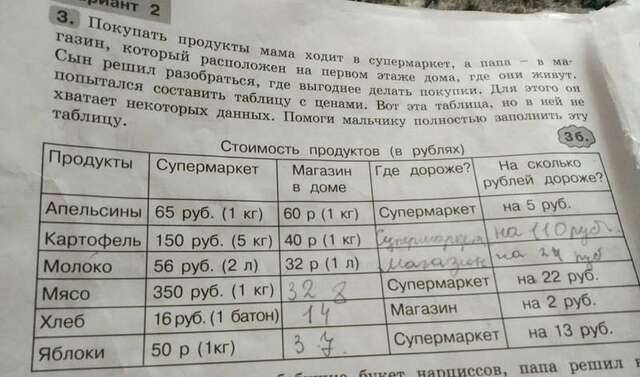 ариант 2
3. Покупать продукты мама ходит в супермаркет, а папа – в ма-
газин, который расположен на первом этаже дома, где они живут.
Сын решил разобраться, где выгоднее делать покупки. Для этого он
попытался составить таблицу с ценами. Вот эта таблица, но в ней не
хватает некоторых данных. Помоги мальчику полностью заполнить эту
таблицу.
3б.
Стоимость продуктов (в рублях)
Продукты Супермаркет Магазин в доме Где дороже? На сколько рублей дороже?
Апельсины 65 руб. (1 кг) 60 р (1 кг) Супермаркет на 5 руб.
Картофель 150 руб. (5 кг) 40 р (1 кг) Супермаркет на 110 руб.
Молоко 56 руб. (2 л) 32 р (1 л) Магазин на 24 руб
Мясо 350 руб. (1 кг) 328 Супермаркет на 22 руб.
Хлеб 16 руб. (1 батон) 14 Магазин на 2 руб.
Яблоки 50 р (1кг) 37. Супермаркет на 13 руб.
букет нарциссов, папа решил